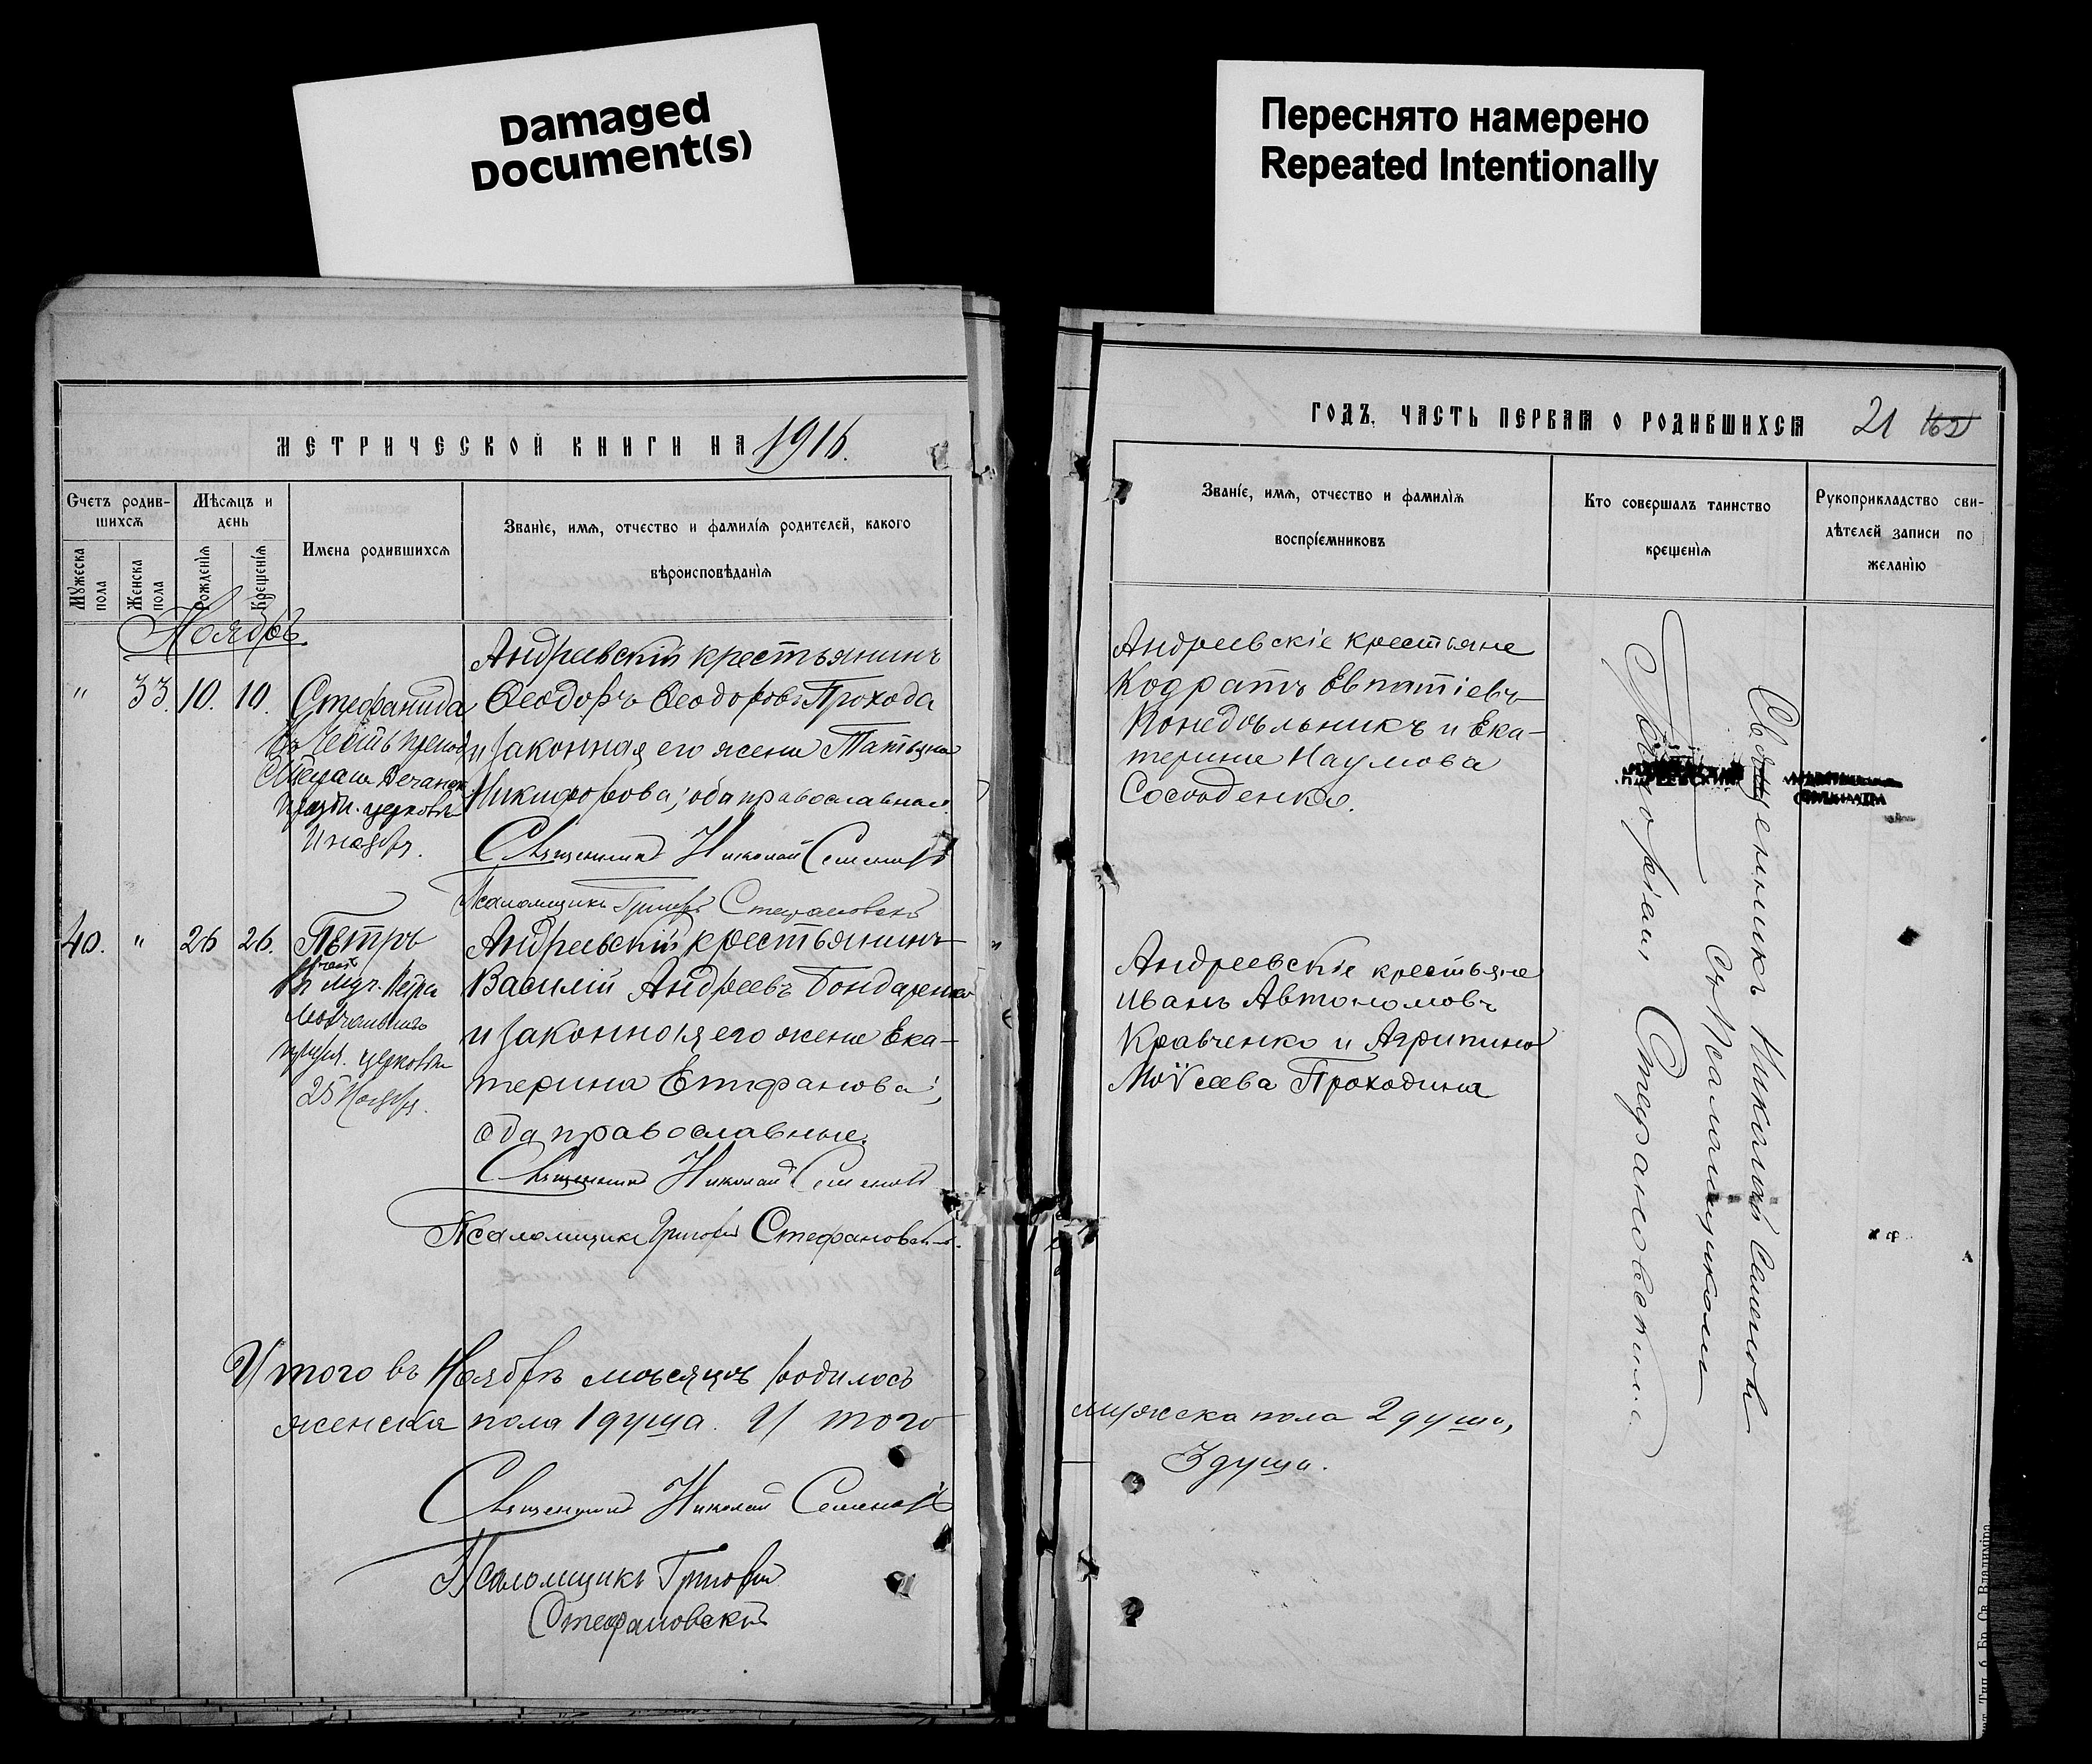 Damaged
Document(s)
Переснято намерено
Repeated Intentionally
МЕТРИЧЕСКОЙ КНИГИ НА 1916.
Счетъ родив-
шихся
Мѣсяцъ и
день
Мужеска
пола
Женска
пола
Рожденія
Крещенія
Имена родившихся
Званіе, имя, отчество и фамилія родителей, какого
вѣроисповѣданія
Ноябрь
" 33. 10. 10.
Стефанида
празн. церковью
11 ноября.
Андреевскій крестьянинъ
Ѳеодоръ Ѳеодоровъ Прохода
и законная его жена Татьяна
Никифорова; оба православные.
Священникъ Николай Семеновъ
Псаломщикъ Григорій Стефановскій
40. " 26 26.
Петръ
въ честь
муч. Петра
празн. церковью
25 Ноября.
Андреевскій крестьянинъ
Василій Андреевъ Бондаренко
и законная его жена Ека-
терина Епифанова;
оба православные.
Священникъ Николай Семеновъ
Псаломщикъ Григорій Стефановскій.
Итого въ Ноябрѣ мѣсяцѣ родилось
женска пола 1 душа. Итого
Священникъ Николай Семеновъ
Псаломщикъ Григорій
Стефановскій
ГОДЪ, ЧАСТЬ ПЕРВАЯ О РОДИВШИХСЯ
21
Званіе, имя, отчество и фамилія
воспріемниковъ
Кто совершалъ таинство
крещенія
Рукоприкладство сви-
дѣтелей записи по
желанію
Андреевскіе крестьяне
Кодратъ Евпатіевъ
Понедѣльникъ и Ека-
терина Наумова
Андреевскіе крестьяне
Иванъ Автономовъ
Кравченко и Агрипина
Моѵсеева Проходина
мужеска пола 2 души,
3 души.
Священникъ Николай Семеновъ
съ Псаломщикомъ
Григоріемъ Стефановскимъ.
Тип. б. Бр. Св. Владиміра